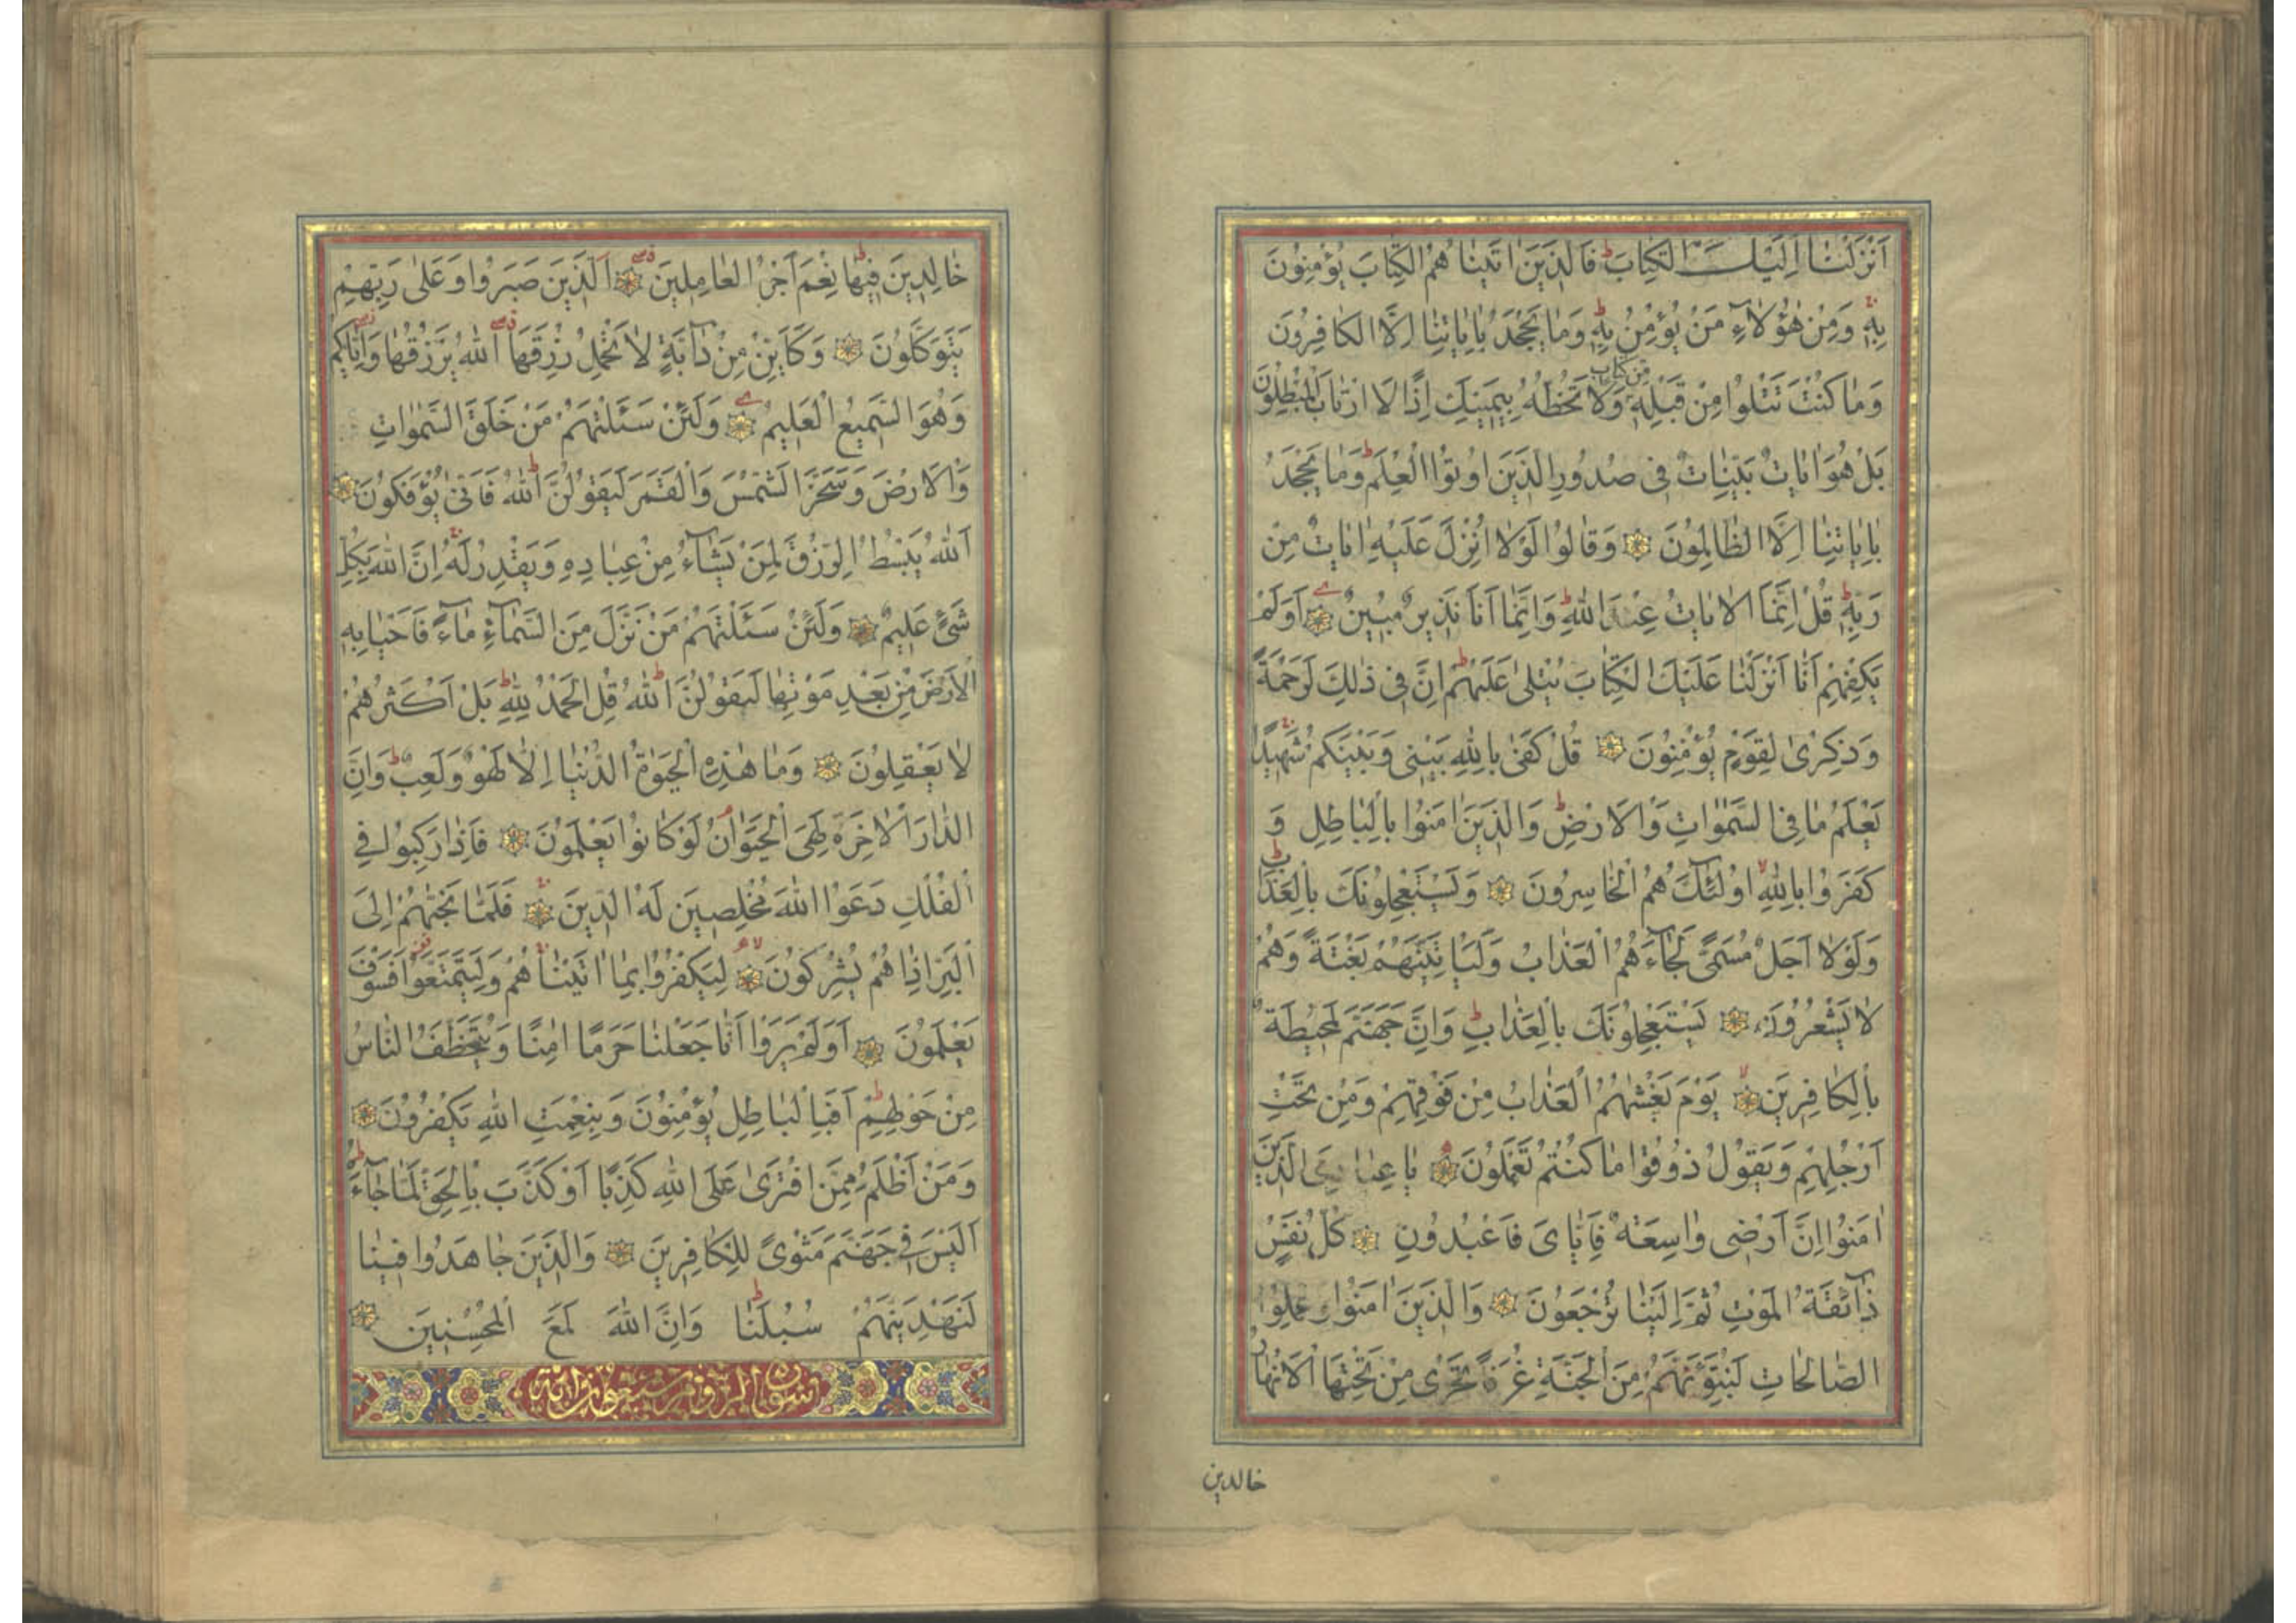 اَنْزَلْنٰا اِلَيْكَ الْكِتٰابَ فَالَّذِينَ اٰتَيْنٰاهُمُ الْكِتٰابَ يُؤْمِنُونَ
بِهِ وَمِنْ هٰؤُلٰاءِ مَنْ يُؤْمِنُ بِهِ وَمٰا يَجْحَدُ بِاٰيٰاتِنٰا اِلَّا الْكٰافِرُونَ
وَمٰا كُنْتَ تَتْلُوا مِنْ قَبْلِهِ مِنْ كِتٰابٍ وَلٰا تَخُطُّهُ بِيَمِينِكَ اِذًا لَارْتٰابَ الْمُبْطِلُونَ
بَلْ هُوَ اٰيٰاتٌ بَيِّنٰاتٌ فِى صُدُورِ الَّذِينَ اُوتُوا الْعِلْمَ وَمٰا يَجْحَدُ
بِاٰيٰاتِنٰا اِلَّا الظّٰالِمُونَ وَقٰالُوا لَوْلٰا اُنْزِلَ عَلَيْهِ اٰيٰاتٌ مِنْ
رَبِّهِ قُلْ اِنَّمَا الْاٰيٰاتُ عِنْدَ اللّٰهِ وَاِنَّمٰا اَنَا نَذِيرٌ مُبِينٌ اَوَلَمْ
يَكْفِهِمْ اَنّٰا اَنْزَلْنٰا عَلَيْكَ الْكِتٰابَ يُتْلىٰ عَلَيْهِمْ اِنَّ فِى ذٰلِكَ لَرَحْمَةً
وَذِكْرىٰ لِقَوْمٍ يُؤْمِنُونَ قُلْ كَفىٰ بِاللّٰهِ بَيْنِى وَبَيْنَكُمْ شَهِيدًا
يَعْلَمُ مٰا فِى السَّمٰوٰاتِ وَالْاَرْضِ وَالَّذِينَ اٰمَنُوا بِالْبٰاطِلِ وَ
كَفَرُوا بِاللّٰهِ اُولٰئِكَ هُمُ الْخٰاسِرُونَ وَيَسْتَعْجِلُونَكَ بِالْعَذٰابِ
وَلَوْلٰا اَجَلٌ مُسَمًّى لَجٰاءَهُمُ الْعَذٰابُ وَلَيَأْتِيَنَّهُمْ بَغْتَةً وَهُمْ
لٰا يَشْعُرُونَ يَسْتَعْجِلُونَكَ بِالْعَذٰابِ وَاِنَّ جَهَنَّمَ لَمُحِيطَةٌ
بِالْكٰافِرِينَ يَوْمَ يَغْشٰهُمُ الْعَذٰابُ مِنْ فَوْقِهِمْ وَمِنْ تَحْتِ
اَرْجُلِهِمْ وَيَقُولُ ذُوقُوا مٰا كُنْتُمْ تَعْمَلُونَ يٰا عِبٰادِىَ الَّذِينَ
اٰمَنُوا اِنَّ اَرْضِى وٰاسِعَةٌ فَاِيّٰاىَ فَاعْبُدُونِ كُلُّ نَفْسٍ
ذٰائِقَةُ الْمَوْتِ ثُمَّ اِلَيْنٰا تُرْجَعُونَ وَالَّذِينَ اٰمَنُوا وَعَمِلُوا
الصّٰالِحٰاتِ لَنُبَوِّئَنَّهُمْ مِنَ الْجَنَّةِ غُرَفًا تَجْرِى مِنْ تَحْتِهَا الْاَنْهٰارُ
خالدين
خٰالِدِينَ فِيهٰا نِعْمَ اَجْرُ الْعٰامِلِينَ اَلَّذِينَ صَبَرُوا وَعَلىٰ رَبِّهِمْ
يَتَوَكَّلُونَ وَكَاَيِّنْ مِنْ دٰابَّةٍ لٰا تَحْمِلُ رِزْقَهَا اَللّٰهُ يَرْزُقُهٰا وَاِيّٰاكُمْ
وَهُوَ السَّمِيعُ الْعَلِيمُ وَلَئِنْ سَئَلْتَهُمْ مَنْ خَلَقَ السَّمٰوٰاتِ
وَالْاَرْضَ وَسَخَّرَ الشَّمْسَ وَالْقَمَرَ لَيَقُولُنَّ اللّٰهُ فَاَنّىٰ يُؤْفَكُونَ
اَللّٰهُ يَبْسُطُ الرِّزْقَ لِمَنْ يَشٰاءُ مِنْ عِبٰادِهِ وَيَقْدِرُ لَهُ اِنَّ اللّٰهَ بِكُلِّ
شَىْءٍ عَلِيمٌ وَلَئِنْ سَئَلْتَهُمْ مَنْ نَزَّلَ مِنَ السَّمٰاءِ مٰاءً فَاَحْيٰا بِهِ
الْاَرْضَ مِنْ بَعْدِ مَوْتِهٰا لَيَقُولُنَّ اللّٰهُ قُلِ الْحَمْدُ لِلّٰهِ بَلْ اَكْثَرُهُمْ
لٰا يَعْقِلُونَ وَمٰا هٰذِهِ الْحَيٰوةُ الدُّنْيٰا اِلّٰا لَهْوٌ وَلَعِبٌ وَاِنَّ
الدّٰارَ الْاٰخِرَةَ لَهِىَ الْحَيَوٰانُ لَوْ كٰانُوا يَعْلَمُونَ فَاِذٰا رَكِبُوا فِى
الْفُلْكِ دَعَوُا اللّٰهَ مُخْلِصِينَ لَهُ الدِّينَ فَلَمّٰا نَجّٰهُمْ اِلَى
الْبَرِّ اِذٰا هُمْ يُشْرِكُونَ لِيَكْفُرُوا بِمٰا اٰتَيْنٰاهُمْ وَلِيَتَمَتَّعُوا فَسَوْفَ
يَعْلَمُونَ اَوَلَمْ يَرَوْا اَنّٰا جَعَلْنٰا حَرَمًا اٰمِنًا وَيُتَخَطَّفُ النّٰاسُ
مِنْ حَوْلِهِمْ اَفَبِالْبٰاطِلِ يُؤْمِنُونَ وَبِنِعْمَتِ اللّٰهِ يَكْفُرُونَ
وَمَنْ اَظْلَمُ مِمَّنِ افْتَرىٰ عَلَى اللّٰهِ كَذِبًا اَوْ كَذَّبَ بِالْحَقِّ لَمّٰا جٰاءَهُ
اَلَيْسَ فِى جَهَنَّمَ مَثْوًى لِلْكٰافِرِينَ وَالَّذِينَ جٰاهَدُوا فِينٰا
لَنَهْدِيَنَّهُمْ سُبُلَنٰا وَاِنَّ اللّٰهَ لَمَعَ الْمُحْسِنِينَ
سورة الروم